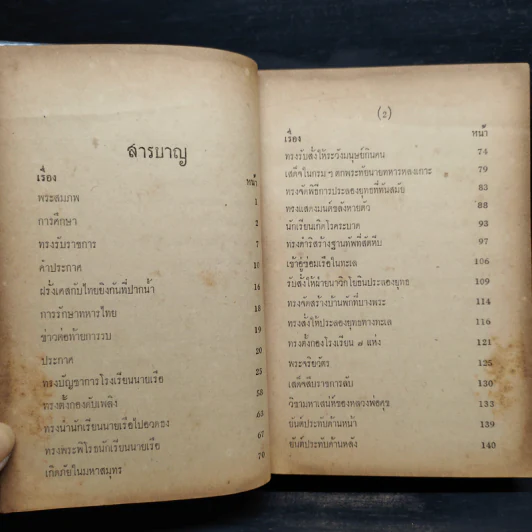 สารบาญ
เรื่อง หน้า
พระสมภพ 1
การศึกษา 2
ทรงรับราชการ 7
คำประกาศ 16
ฝรั่งเศสกับไทยยิงกันที่ปากน้ำ 16
การรักษาทหารไทย 18
ข่าวต่อท้ายการรบ 19
ประกาศ 20
ทรงบัญชาการโรงเรียนนายเรือ 25
ทรงตั้งกองดับเพลิง 58
ทรงนำนักเรียนนายเรือไปอวดธง 63
ทรงพระพิโรธนักเรียนนายเรือ 67
เกิดภัยในมหาสมุทร 70
(2)
เรื่อง หน้า
ทรงรับสั่งให้ระวังมนุษย์กินคน 74
เสด็จในกรม ฯ ตกพระทัยนายทหารหลงเกาะ 79
ทรงจัดพิธีการประลองยุทธที่ทันสมัย 83
ทรงแสดงมนต์ขลังหายตัว 88
นักเรียนเกิดโรคระบาด 93
ทรงดำริสร้างฐานทัพที่สัตหีบ 97
เข้าอู่ซ่อมเรือในทะเล 106
รับสั่งให้ฝ่ายนาวิกโยธินประลองยุทธ 109
ทรงจัดสร้างบ้านพักที่บางพระ 114
ทรงสั่งให้ประลองยุทธทางทะเล 116
ทรงตั้งกองโรงเรียน ๗ แห่ง 121
พระจริยวัตร 125
เสด็จสืบราชการลับ 130
วิชามหาเสน่ห์ของหลวงพ่อศุข 133
ยันต์ประทับด้านหน้า 139
ยันต์ประทับด้านหลัง 140